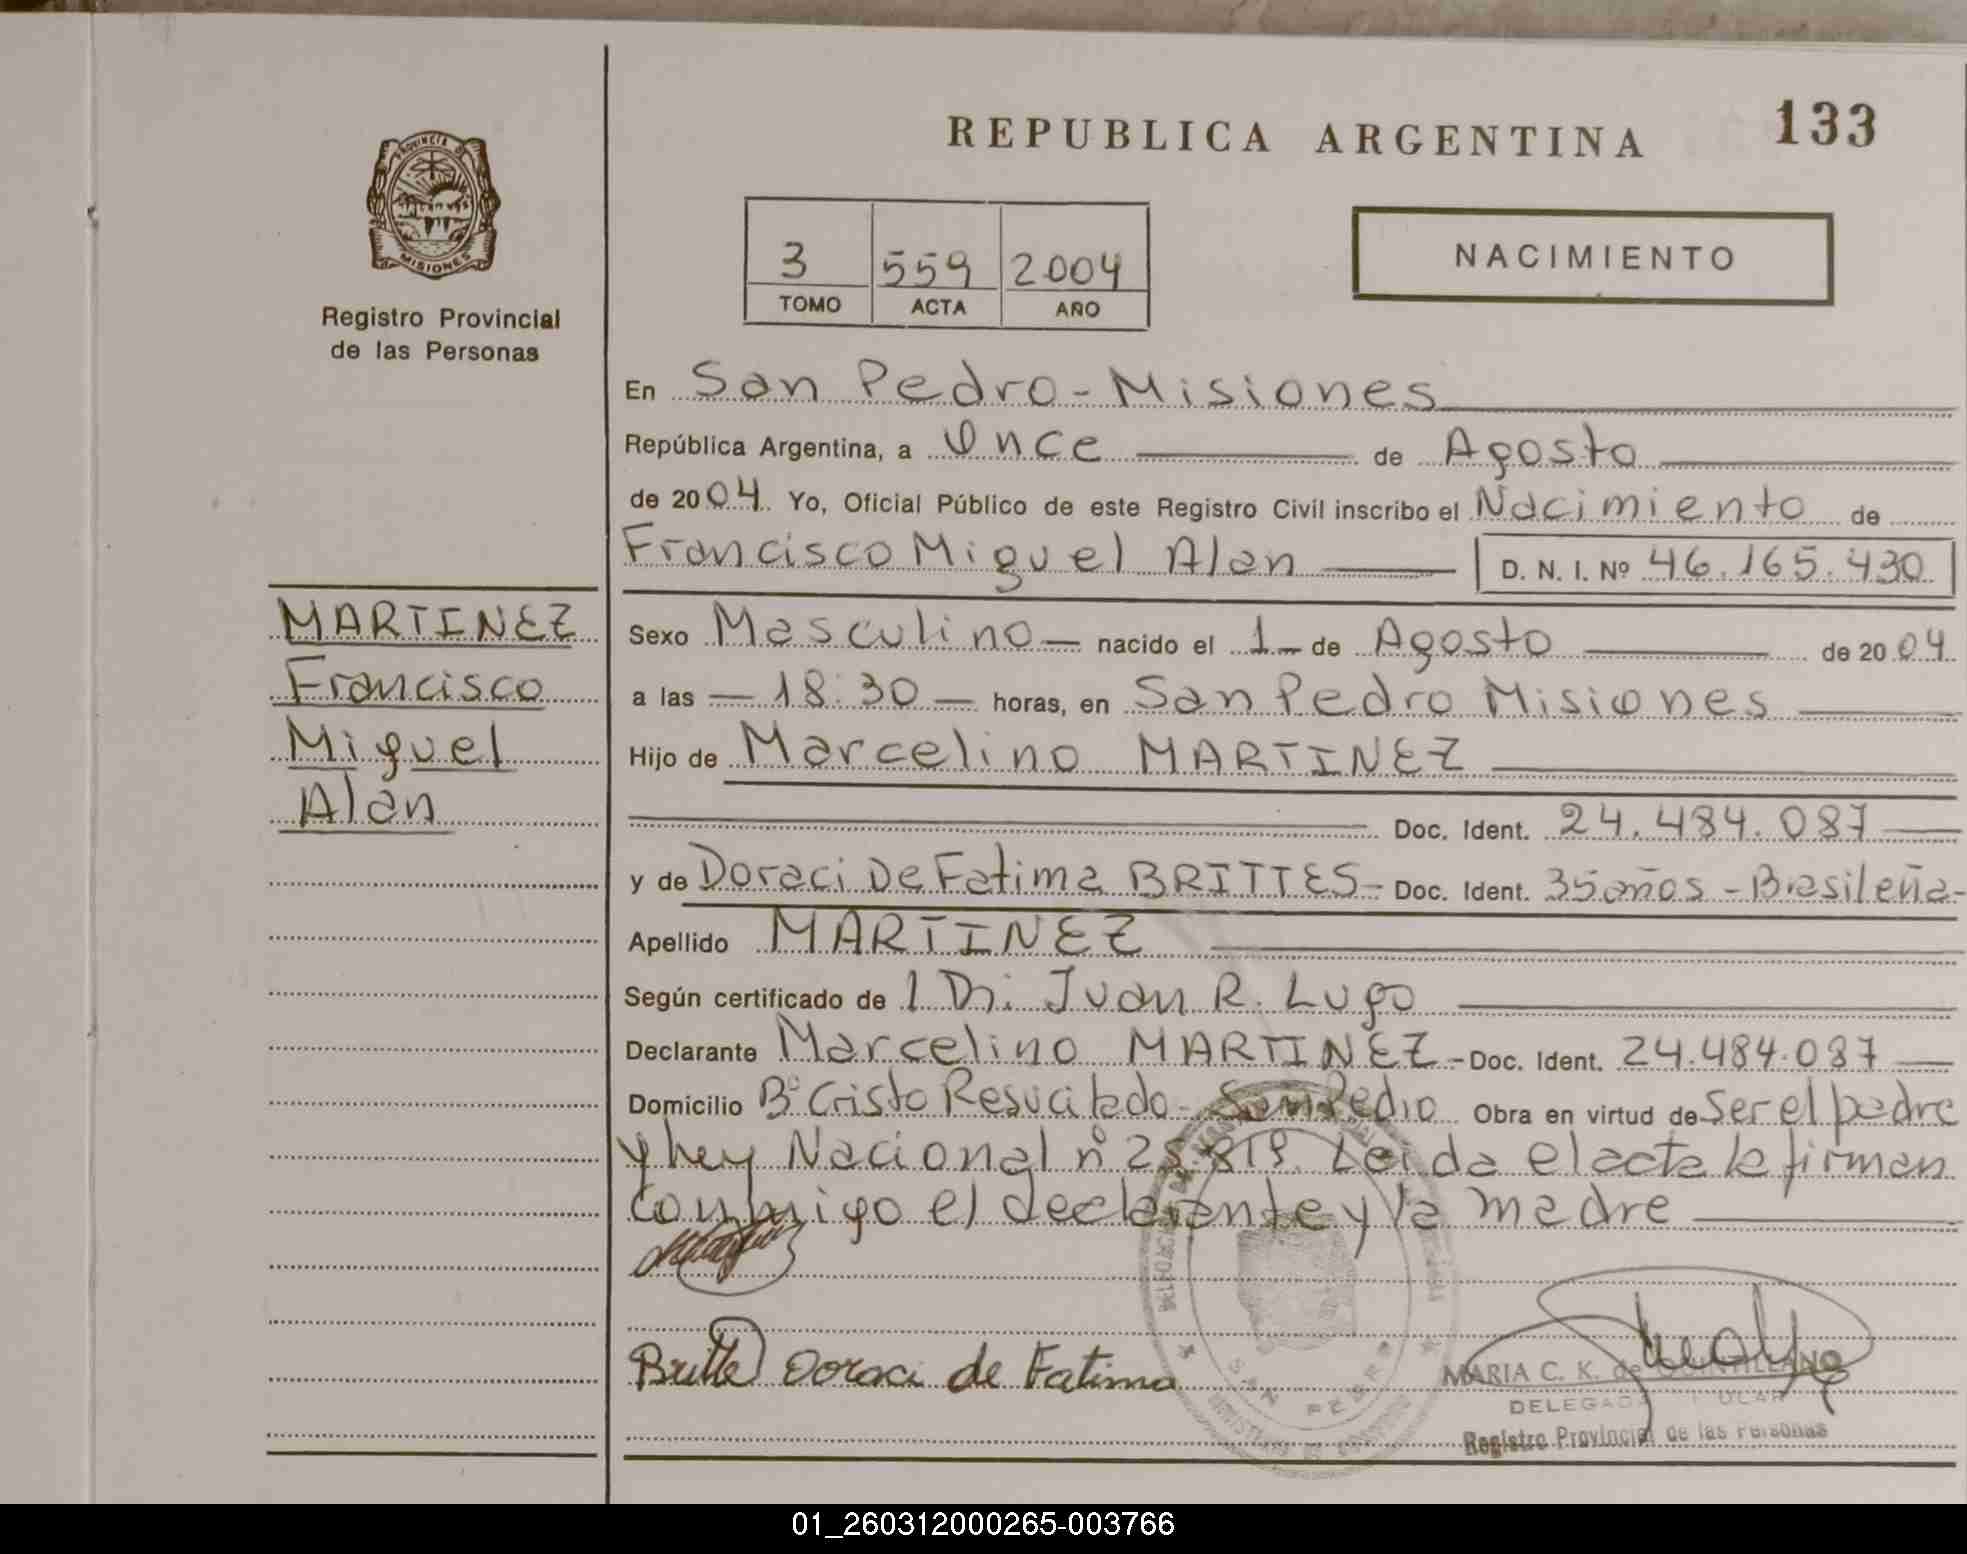 REPUBLICA ARGENTINA 133
PROVINCIA DE
MISIONES
Registro Provincial
de las Personas
3 559 2004
TOMO ACTA AÑO
NACIMIENTO
En San Pedro - Misiones
República Argentina, a Once de Agosto
de 2004. Yo, Oficial Público de este Registro Civil inscribo el Nacimiento de
Francisco Miguel Alan D. N. I. Nº 46.165.430
MARTINEZ
Francisco
Miguel
Alan
Sexo Masculino nacido el 1 de Agosto de 2004
a las 18:30 horas, en San Pedro Misiones
Hijo de Marcelino MARTINEZ
Doc. Ident. 24.484.087
y de Doraci De Fatima BRITTES - Doc. Ident. 35 años - Brasileña -
Apellido MARTINEZ
Según certificado de Juan R. Lugo
Declarante Marcelino MARTINEZ - Doc. Ident. 24.484.087
Domicilio Bº Cristo Resucitado - San Pedro Obra en virtud de Ser el padre
y Ley Nacional nº 25.819. Leida el acta la firman
conmigo el declarante y la madre
Britte Doraci de Fatima
SAN PEDRO
MARIA C. K. de QUINTILLANO
DELEGADA TITULAR
Registro Provincial de las Personas
01_260312000265-003766